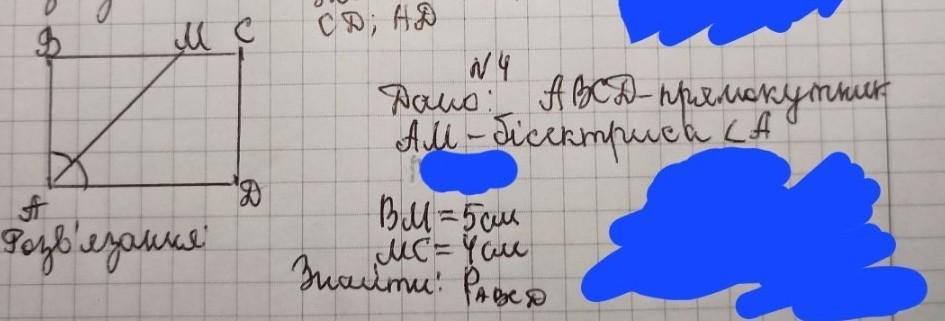 CD; AD
B M C
N4
Дано: ABCD-прямокутник
AM-бісектриса ∠A
A D
BM=5см
Розв'язання:
MC=4см
Знайти: P_ABCD